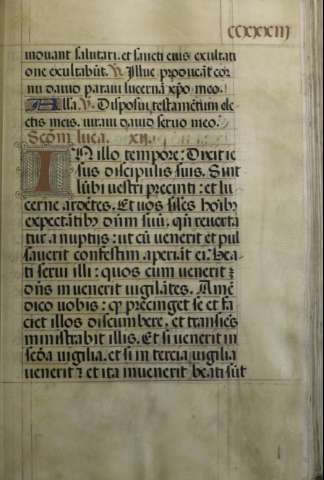 CCXXXIII
movant salutari. et sancti eius exultati
one exultabūt. ℣. Illuc producā cor
nu david paravi lucernā xp̄o meo.
Alla. ℣. Disposui testamētum ele
ctis meis. iuravi david servo meo.
Scd̄m lucā. XII.
IN illo tempore: Dixit ie
sus discipulis suis. Sint
lūbi vestri precinti: et lu
cerne ardētes. Et vos siles hoībꝫ
expectātibꝫ dn̄m suū. qn̄ reverta
tur a nuptijs: ut cū venerit et pul
saverit confestim aperiāt ei. Bea
ti servi illi: quos cum venerit ⁊
dn̄s invenerit vigilātes. Amē
dico vobis: qꝫ precinget se et fa
ciet illos discumbere. et transiēs
ministrabit illis. Et si venerit in
scd̄a vigilia. et si in tercia vigilia
venerit ⁊ et ita invenerit beati sūt